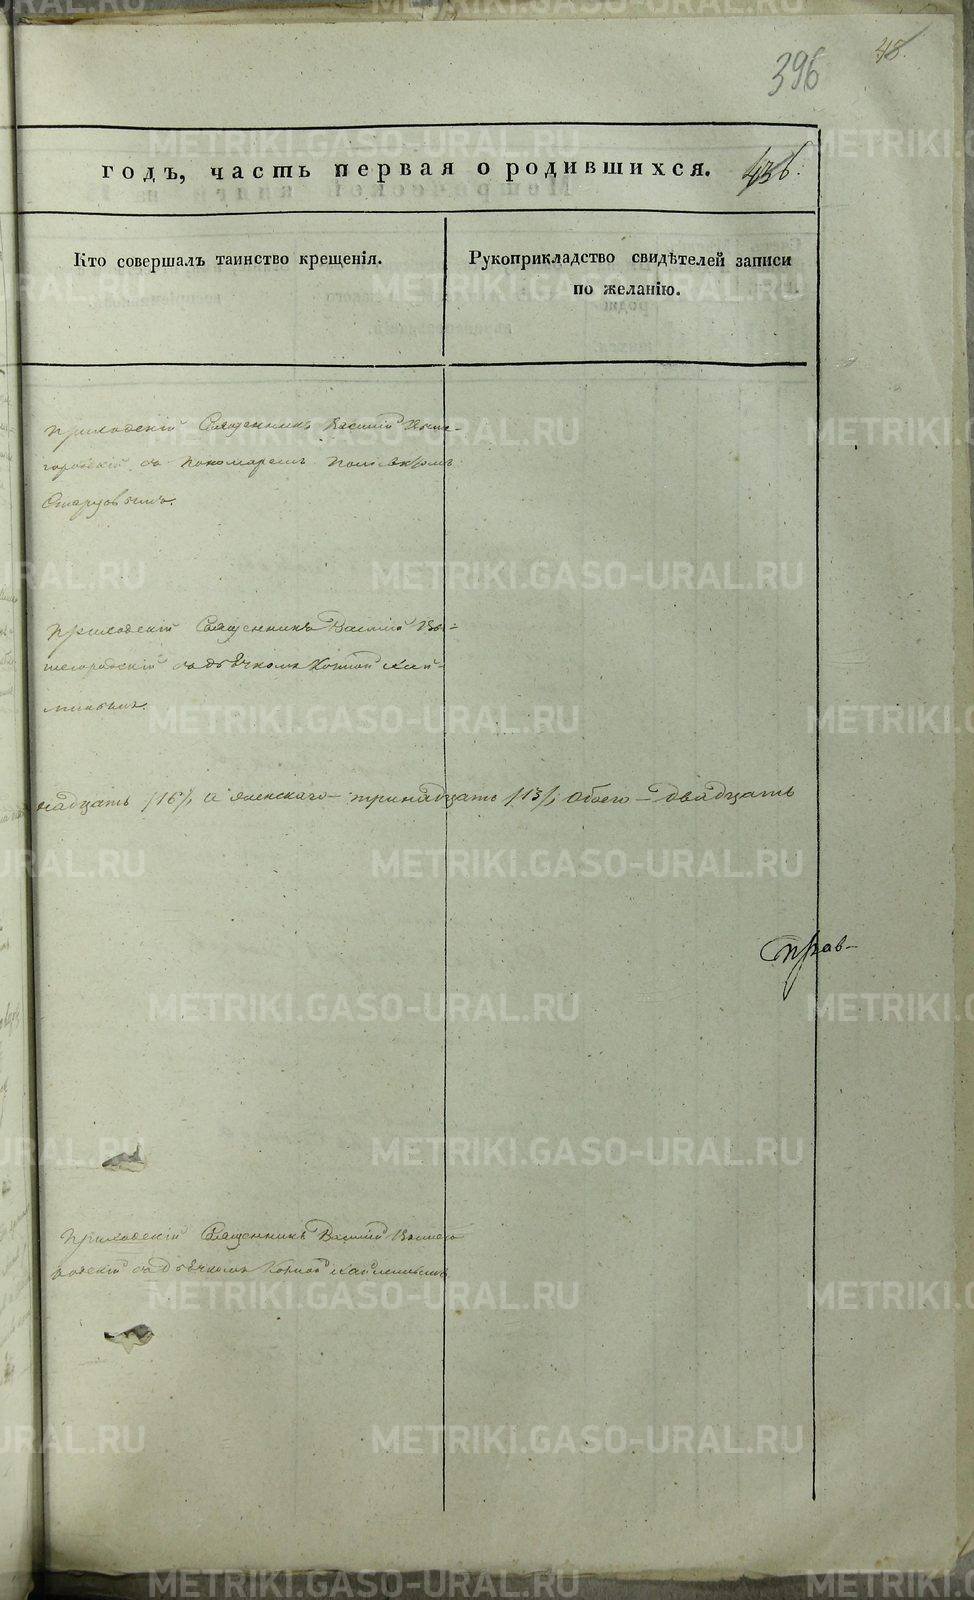 48.
396
годъ, часть первая о родившихся. 436.
Кто совершалъ таинство крещенія.
Рукоприкладство свидѣтелей записи
по желанію.
Приходскій Священникъ Василій Выше-
городскій съ Пономаремъ
Старцовымъ.
Приходскій Священникъ Василій Вы-
шегородскій съ дьячкомъ
надцать /16/, а женскаго – тринадцать /13/, обоего – двадцать
Справ-
Приходскій Священникъ Василій Вышего
родскій съ дьячкомъ
METRIKI.GASO-URAL.RU